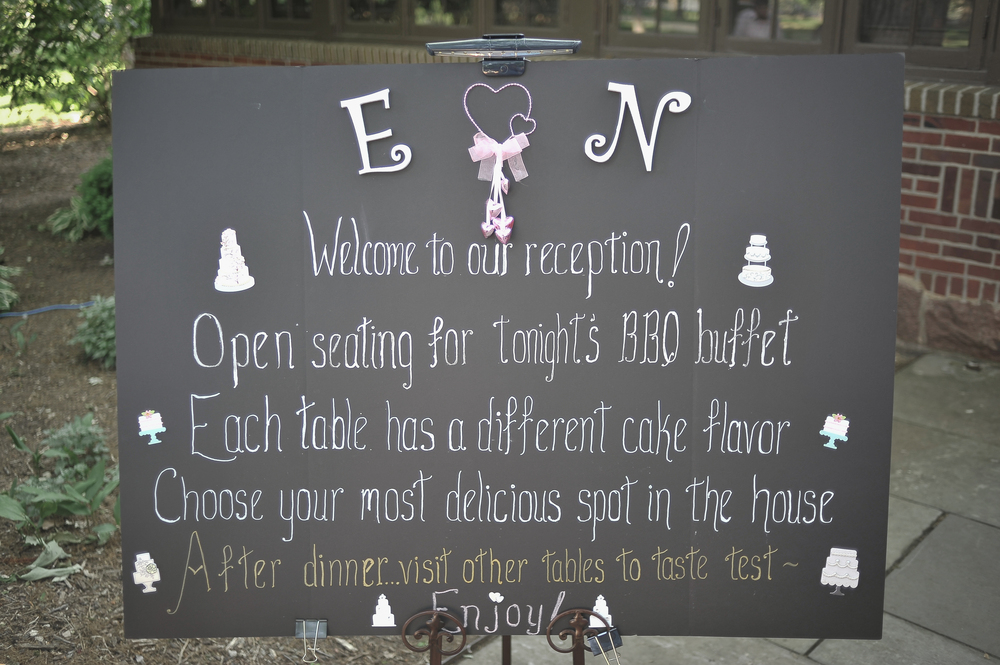 E N
Welcome to our reception!
Open seating for tonight's BBQ buffet
Each table has a different cake flavor
Choose your most delicious spot in the house
After dinner...visit other tables to taste test ~
Enjoy!